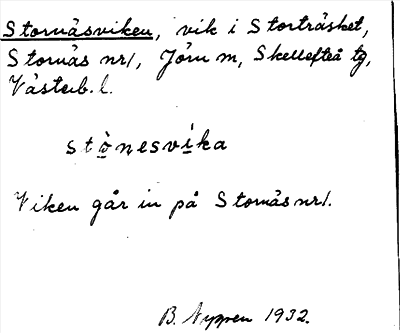 Stornäsviken, vik i Storträsket,
Stornäs nr1, Jörn m, Skellefteå tg,
Västerb. l.
stò̱nesvi̱ka
Viken går in på Stornäs nr1.
B. Nygren 1932.